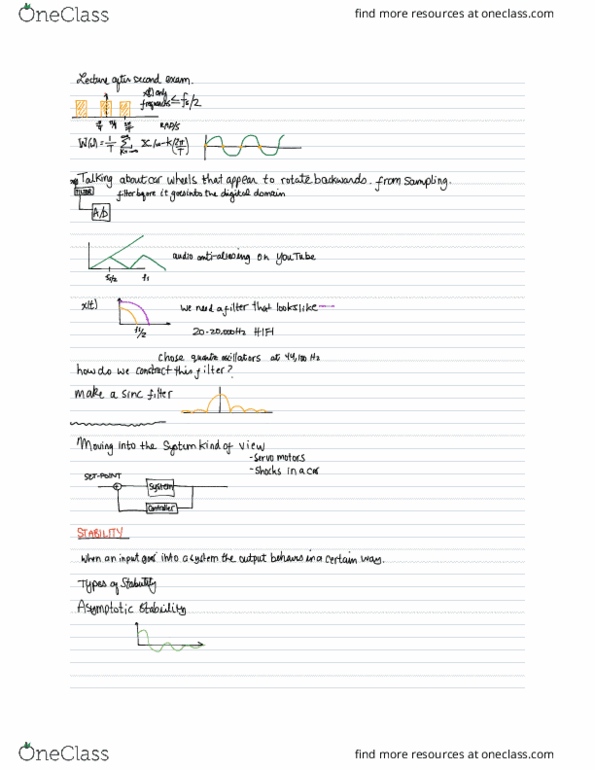 OneClass
find more resources at oneclass.com
Lecture after second exam.
x(t) only
frequencies ≤ fs/2
RAD/S
Talking about car wheels that appear to rotate backwards. from Sampling.
filter before it goes into the digital domain
A/D
audio anti-aliasing on YouTube
fs/2 fs
x(t)
we need a filter that looks like
20-20,000Hz HIFI
Chose quartz oscillators at 44,100 Hz
how do we construct this filter?
make a sinc filter
Moving into the System kind of view
-Servo motors
-Shocks in a car
SET-POINT
+
System
Controller
STABILITY
When an input goes into a system the output behaves in a certain way.
Types of Stability
Asymptotic Stability
OneClass
find more resources at oneclass.com